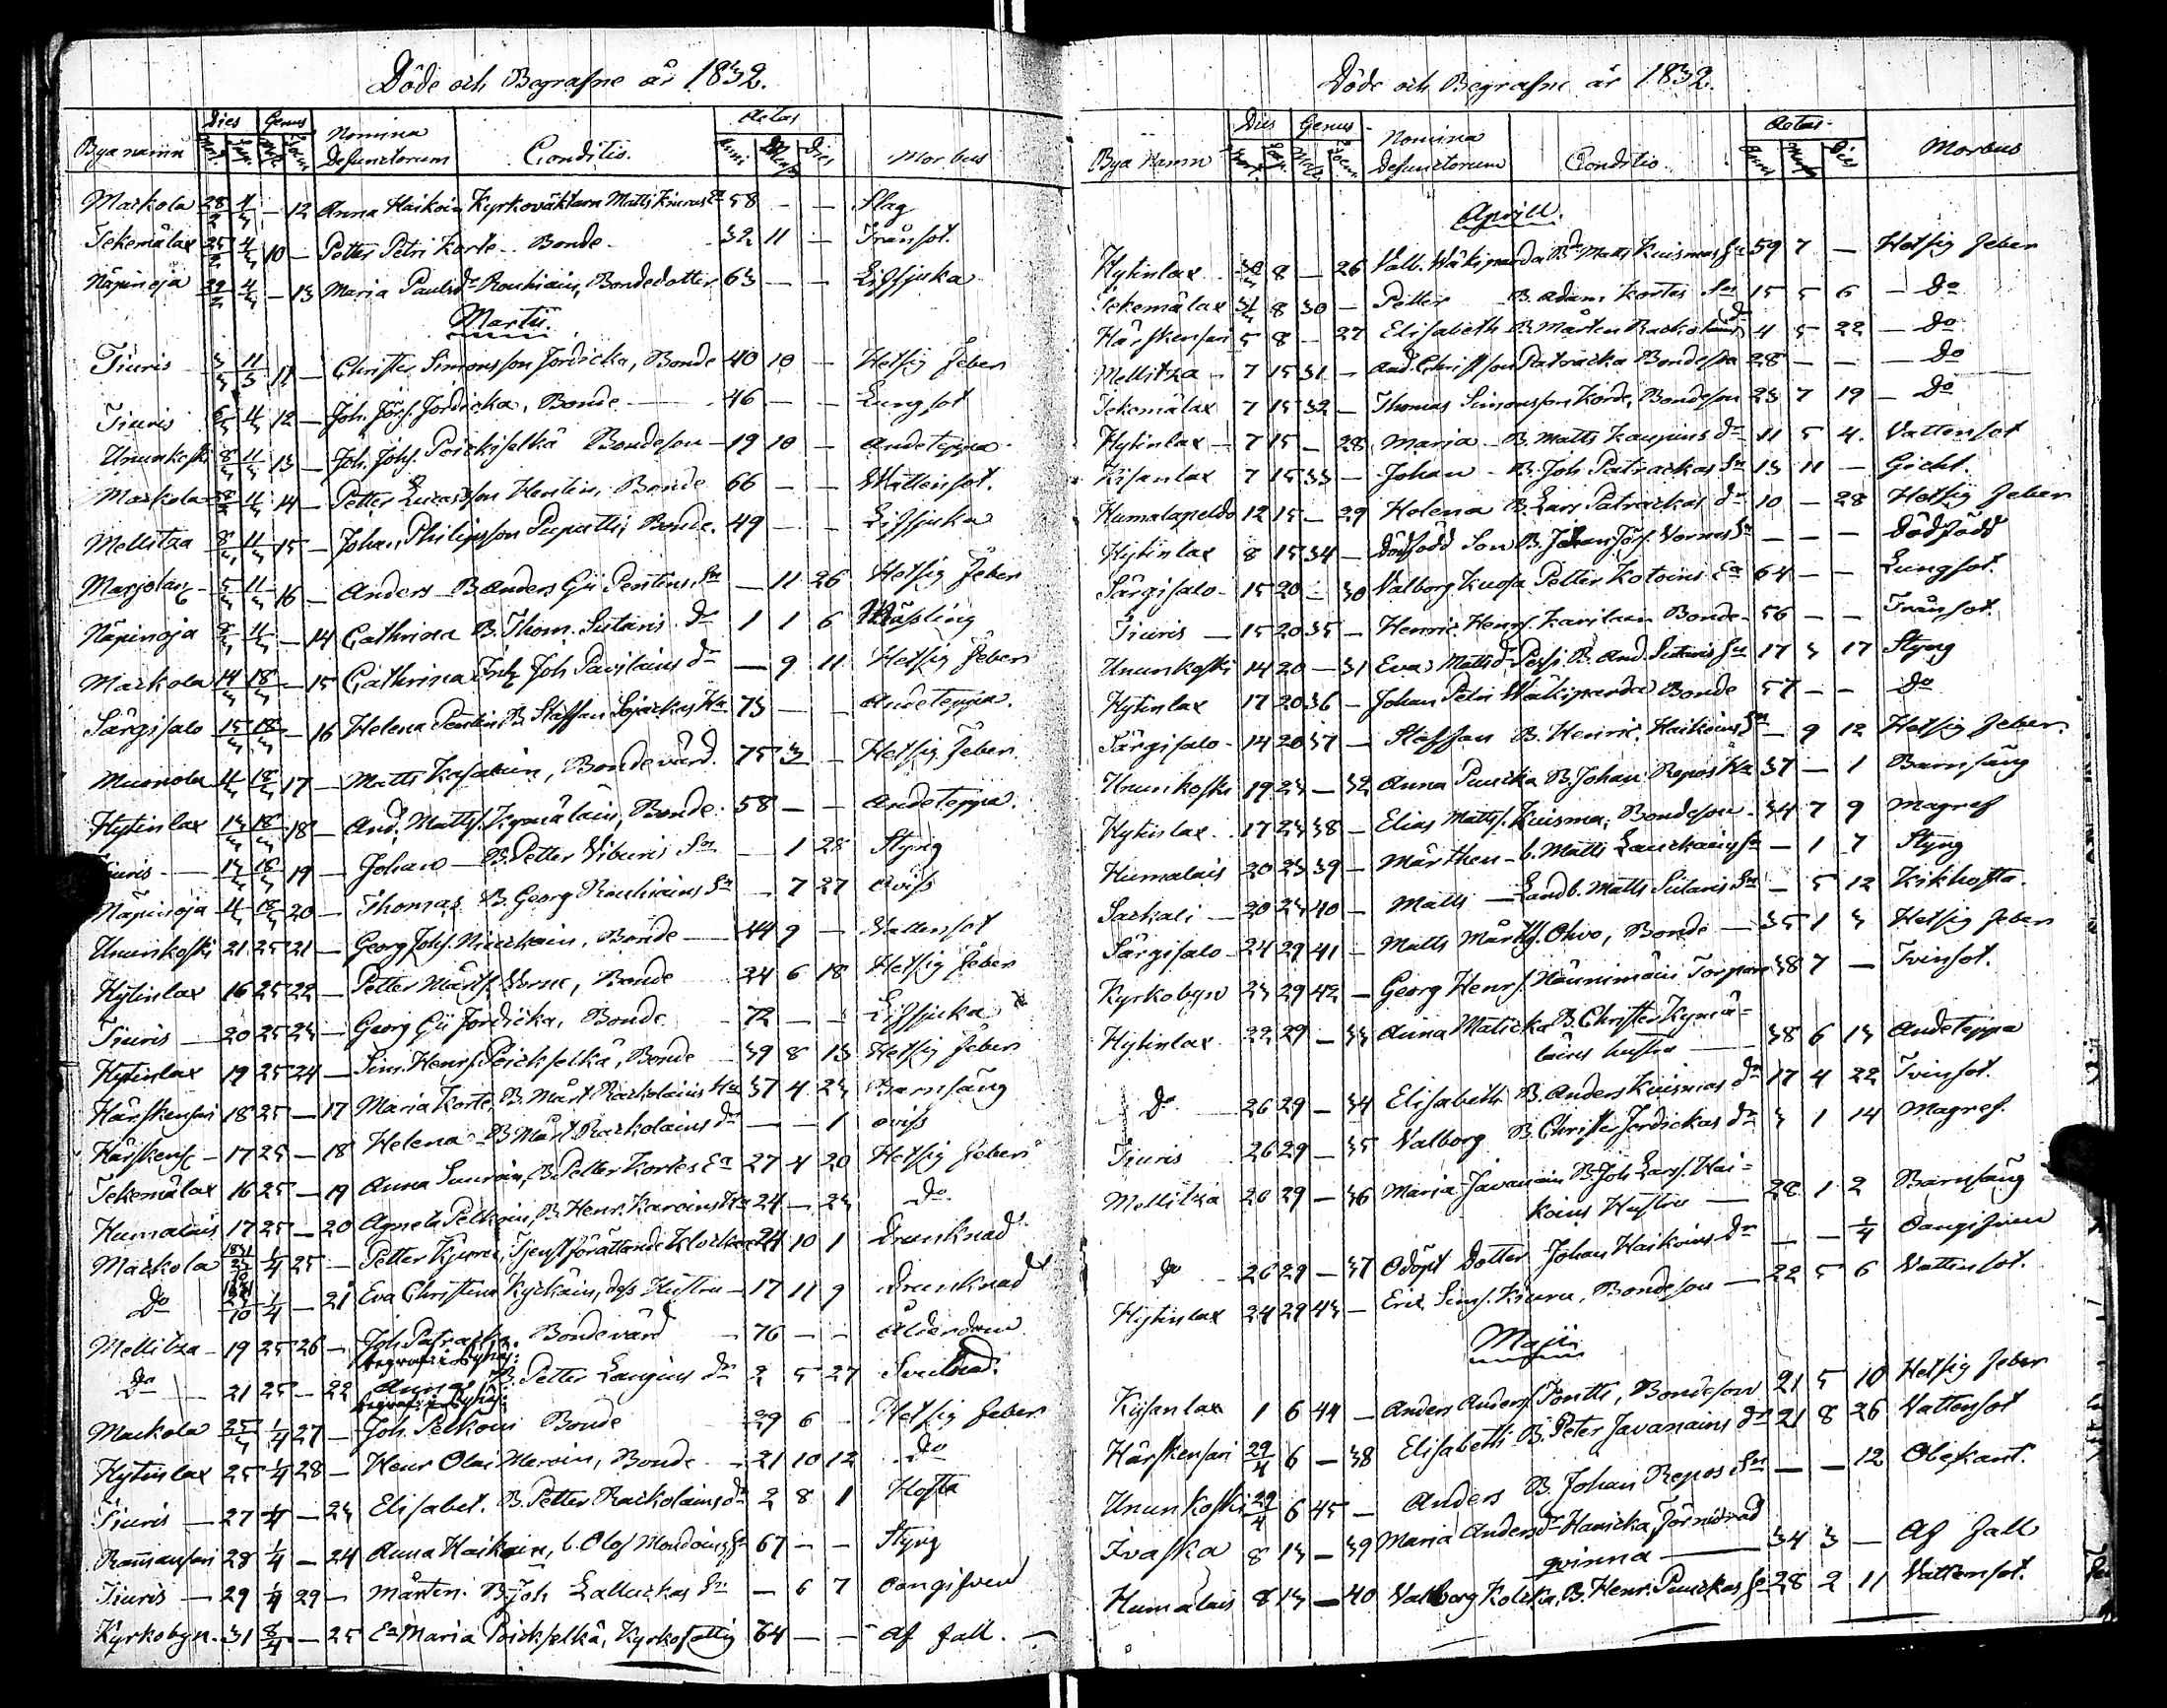 Döde och Begrafne år 1832.
Dies Genus Aetas
Byanamn Nomina Defunctorum Conditio. Anni Mens Dies Morbus
Mackola 28/2 4/3 – 12 Anna Haikoin Kyrkoväktaren Matts Kiurus Ea 58 – – Slag
Tekemälax 25/2 4/3 10 – Petter Petri Korte – Bonde – 32 11 – Trånsot.
Näpinoja 29/2 4/3 – 13 Maria Paulsdr Rouhiain, Bondedotter 63 – – Lifsjuka
Martii.
Tiuris 3/3 11/3 11 – Christer Simonsson Jordicka, Bonde 40 10 – Hetsig Feber
Tiuris 6/3 11/3 12 – Joh. Jörs. Jordicka, Bonde – 46 – – Lungsot
Ununkoski 8/3 11/3 13 – Joh. Johs. Poickselkä Bondeson – 19 10 – Andetäppa
Mackola 11/3 14 – Petter Lucasson Hentin, Bonde 66 – – Wattensot.
Mellitza 8/3 11/3 15 – Johan Philipsson Puputti, Bonde. 49 – – Lifsjuka
Marjolax 5/3 11/3 16 – Anders B. Anders Gii Penttins Sn – 11 26 Hetsig Feber
Näpinoja 11/3 – 14 Cathrina B. Thom. Sutaris dr 1 1 6 Mässling
Mackola 14/3 18/3 – 15 Cathrina Inh Joh Pavilains dr – 9 11 Hetsig Feber
Särgisalo 15/3 18/3 – 16 Helena Penttin B. Staffan Ka 73 – – Andeteppa.
Muonola 18/3 17 – Matts Kasakain, Bondevärd. 75 3 – Hetsig Feber
Hytinlax 13/3 18/3 18 – And. Matts. Kymäläin, Bonde. 58 – – Andeteppa.
Tiuris – 18/3 19 – Johan – B. Petter Viburis Sn – 1 28 Styng
Näpinoja 18/3 20 – Thomas B. Georg Rouhiains Sn – 7 27 oviss
Ununkoski 21 25 21 – Georg Johs. Bonde – 44 9 – Vattensot
Hytinlax 16 25 22 – Petter Mårts. Vorne, Bonde 24 6 18 Hetsig Feber
Tiuris – 20 25 23 – Georg Gii Jordicka, Bonde – 72 – – Lifsjuka
Hytinlax 19 25 24 – Sim. Henrs. Poickselkä, Bonde – 39 8 13 Hetsig Feber
Härskensari 18 25 – 17 Maria Korte, B. Mårt Rackolains Ha 37 4 23 Barnsäng
Härskens – 17 25 – 18 Helena – B. Mårt Rackolains dr – – 1 oviss
Tekemälax 16 25 – 19 Anna B. Petter Kortes Ea 27 4 20 Hetsig Feber
Humalais 17 25 – 20 Agneta Pelkoin, B. Henr. Karvins Ha 24 – 23 do.
Mackola 1831 1/4 25 – Petter Kjuru, Tjenstförättande Klockare 24 10 1 Drunknad
Do 1831 23/10 1/4 – 21 Eva Christina Kyckäin, dess Hustru – 17 11 9 Drunknad
Mellitza – 19 25 26 – Joh. Patracka. Bondevärd – 76 – – Ålderdom
Do – 21 25 – 22 Anna B. Petter Largius dr 2 5 27 Svullnad.
Mackola 25/3 1/4 27 – Joh. Pelkoin Bonde 29 6 – Hetsig Feber
Hytinlax 25 1/4 28 – Henr Olai Meroin, Bonde – 21 10 12 Do
Tiuris – 27 1/4 – 23 Elisabet. B. Petter Rackolains dr 2 8 1 Hosta
Ramansari 28 1/4 – 24 Anna Haikoin, b. Olof Mondoins Ea 67 – – Styng
Tiuris – 29 1/4 29 – Mårten. B. Joh Lalluckas Sn – 6 7 Oangifven
Kyrkobyn. 31 8/4 – 25 Ea Maria Poickselkä, Kyrkofattig 64 – – Af fall. –
Döde och Begrafne år 1832.
Dies Genus Aetas
Bya Namn Nomina Defunctorum Conditio Anni Mens Dies Morbus
Aprill.
Hytinlax 30/3 8 – 26 Valb. Wäkiparda Bde Matts Kuismas Ea 59 7 – Hetsig feber
Tekemälax 31/3 8 30 – Petter B. Adam Kortes Sn 15 5 6 – Do
Härskensari 5 8 – 27 Elisabeth B. Mårten Rackolains dr 4 5 22 – Do
Mellitza – 7 15 31 – And. Christ son Patracka Bondeson 28 – – – Do
Tekemälax 7 15 32 – Thomas Simonsson Korte, Bondeson 23 7 19 – Do
Hytinlax – 7 15 – 28 Maria – B. Matts Kaupins dr 11 5 4. Vattensot
Kisanlax 7 15 33 – Johan – B. Joh Patrackas Sn 13 11 – Gicht.
Humalapeldo 12 15 – 29 Helena B. Lars Patrackas dr 10 – 28 Hetsig feber
Hytinlax 8 15 34 – Dödfödd Son B. Johan Jörs. Vornes Sn – – – Dödfödd
Särgisalo – 15 20 – 30 Valborg Kuosa Petter Kotoins Ea 64 – – Lungsot.
Tiuris – 15 20 35 – Henric Henrs. Karilain Bonde – 56 – – Trånsot.
Ununkoski 14 20 – 31 Eva Mattsd Pessi B. And. Sutaris Hu 17 3 17 Styng
Hytinlax 17 20 36 – Johan Petri Wäkiparda Bonde 57 – – Do
Särgisalo – 14 20 37 – Staffan B. Henric Haikoins Sn – 9 12 Hetsig feber.
Ununkoski 19 23 – 32 Anna Puucka B. Johan Repos Ha 37 – 1 Barnsäng
Hytinlax – 17 23 38 – Elias Matts. Kuisma, Bondeson – 34 7 9 Magref
Humalais 20 23 39 – Mårthen – b. Matts Lauckains Sn – 1 7 Styng
Sarkali – 20 23 40 – Matts – Landb. Matts Sutaris Sn – 5 12 Kikhosta.
Särgisalo – 24 29 41 – Matts Mårths. Ohvo, Bonde – 35 1 3 Hetsig feber
Kyrkobyn 23 29 42 – Georg Henrs. Torpare 38 7 – Tvinsot.
Hytinlax 22 29 – 33 Anna Maticka B. Christer Kymä=
läins hustru – 38 6 13 Andeteppa
Do 26 29 – 34 Elisabeth B. Anders Kuismas dr 17 4 22 Tvinsot.
Tiuris 26 29 – 35 Valborg B. Christer Jordickas dr 3 1 14 Magref.
Mellitza 26 29 – 36 Maria Javanain B. Joh Lars. Hai=
koins Hustru – 28 1 2 Barnsäng
Do – 26 29 – 37 Odöpt Dotter Johan Haikoins dr – – 1/4 Oangifven
Hytinlax 24 29 43 – Eric Sims. Kiuru, Bondeson – 22 5 6 Vattensot.
Majii
Kisanlax 1 6 44 – Anders Anders. Pontti, Bondeson 21 5 10 Hetsig feber
Härskensari 29/4 6 – 38 Elisabeth B. Peter Javanains dr 21 8 26 Vattensot
Ununkoski 29/4 6 45 – Anders B. Johan Repos Sn – – 12 Obekant.
Ivaska 8 13 – 39 Maria Andersdr Hanicka Förmörad
qvinna – 34 3 – Af fall
Humalais 8 13 – 40 Valborg Kolcka, B. Henr. Puuckas Ea 28 2 11 Vattensot.